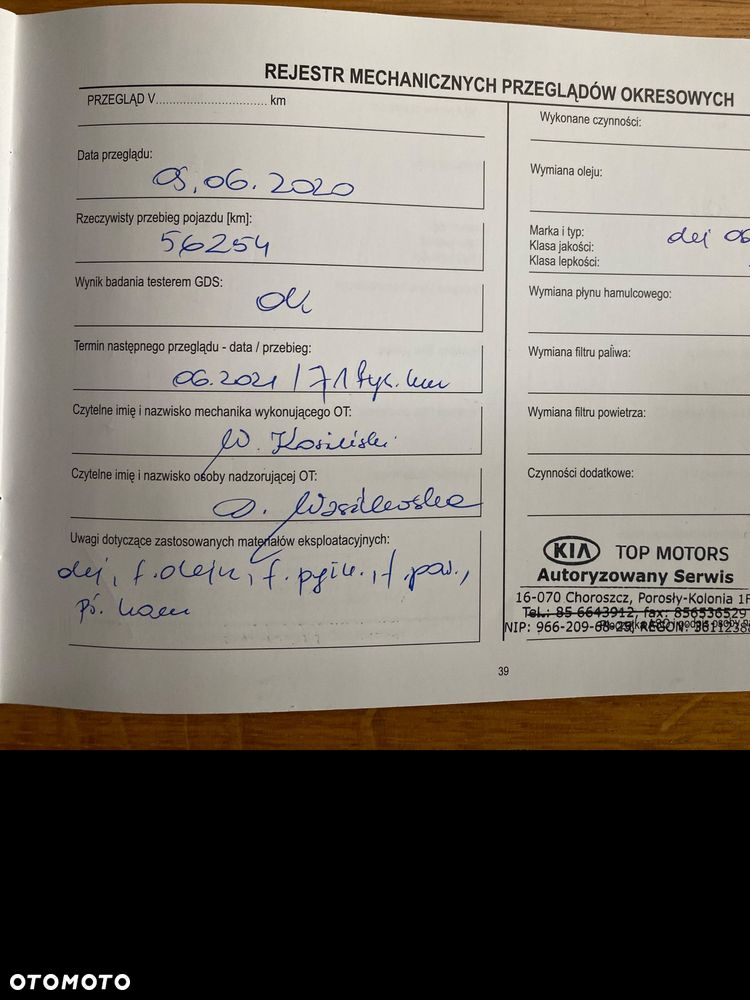 REJESTR MECHANICZNYCH PRZEGLĄDÓW OKRESOWYCH
PRZEGLĄD V................................ km
Data przeglądu:
05.06.2020
Rzeczywisty przebieg pojazdu [km]:
56254
Wynik badania testerem GDS:
OK
Termin następnego przeglądu - data / przebieg:
06.2021 / 71 tys. km
Czytelne imię i nazwisko mechanika wykonującego OT:
W.
Czytelne imię i nazwisko osoby nadzorującej OT:
Wasilewska
Uwagi dotyczące zastosowanych materiałów eksploatacyjnych:
olej, f. oleju, f. pyłk., f. pow.,
pł. ham
Wykonane czynności:
Wymiana oleju:
Marka i typ: olej
Klasa jakości:
Klasa lepkości:
Wymiana płynu hamulcowego:
Wymiana filtru paliwa:
Wymiana filtru powietrza:
Czynności dodatkowe:
KIA TOP MOTORS
Autoryzowany Serwis
16-070 Choroszcz, Porosły-Kolonia 1F
Tel.: 85 6643912, fax: 856536529
NIP: 966-209-68-29, REGON:
39
OTOMOTO